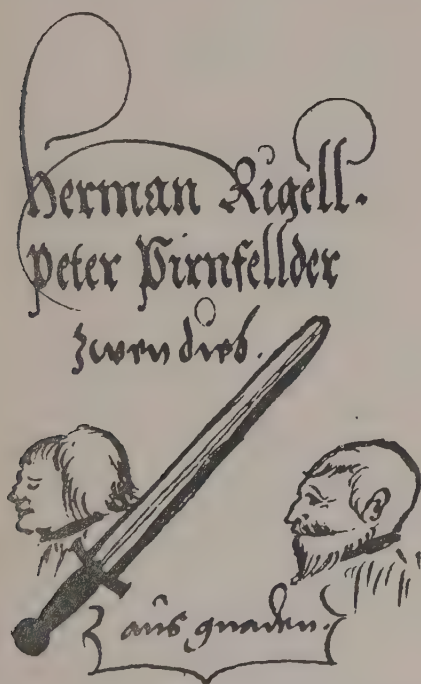 Herman Rigell.
Peter Pirnfellder
zwen dieb.
aus gnaden.